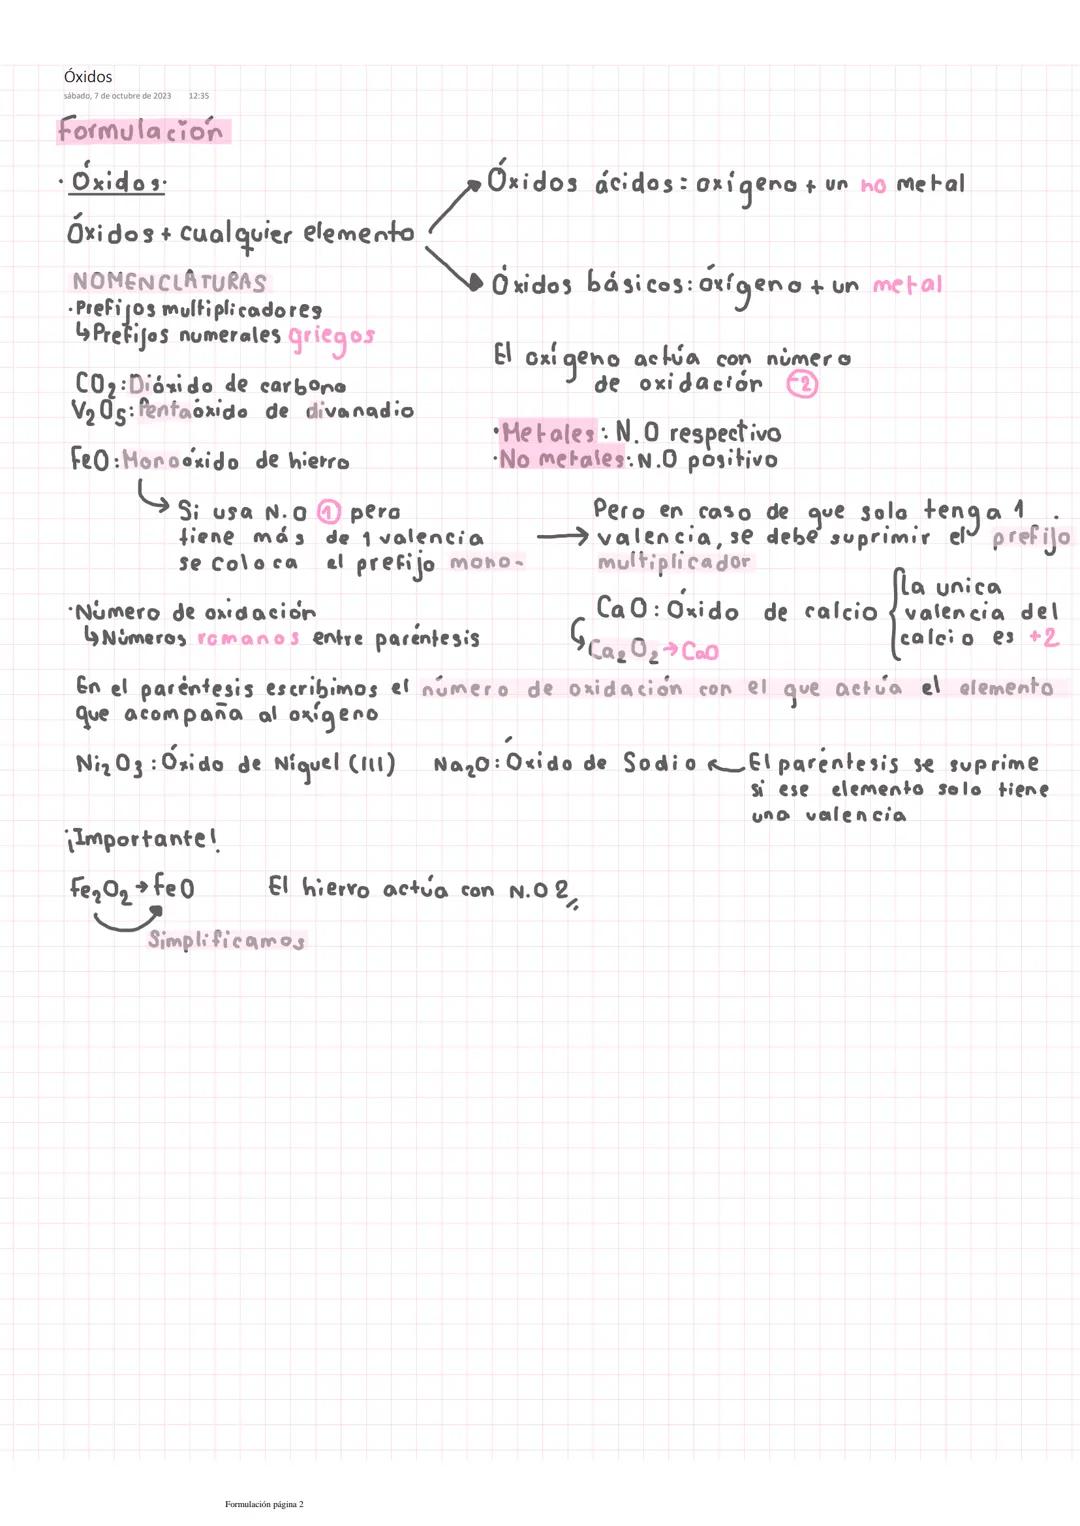 Óxidos
sábado, 7 de octubre de 2023 12:35
Formulación
· Óxidos·
Óxidos + cualquier elemento
Óxidos ácidos: oxígeno + un no metal
Óxidos básicos: óxígeno + un metal
NOMENCLATURAS
·Prefijos multiplicadores
↳Prefijos numerales griegos
CO₂: Dióxido de carbono
V₂O₅: Pentaóxido de divanadio
FeO: Monoóxido de hierro
El oxígeno actúa con número
de oxidación -2
·Metales: N.O respectivo
·No metales: N.O positivo
Si usa N.O 1 pero
tiene más de 1 valencia
se coloca el prefijo mono-
Pero en caso de que solo tenga 1
valencia, se debe suprimir el prefijo
multiplicador
CaO: Óxido de calcio
la unica
valencia del
calcio es +2
Ca₂O₂ → CaO
·Número de oxidación
↳Números romanos entre paréntesis
En el paréntesis escribimos el número de oxidación con el que actúa el elemento
que acompaña al oxígeno
Ni₂O₃: Óxido de Níquel (III)
Na₂O: Óxido de Sodio ← El paréntesis se suprime
si ese elemento solo tiene
una valencia
¡Importante!
Fe₂O₂ → FeO El hierro actúa con N.O 2
Simplificamos
Formulación página 2